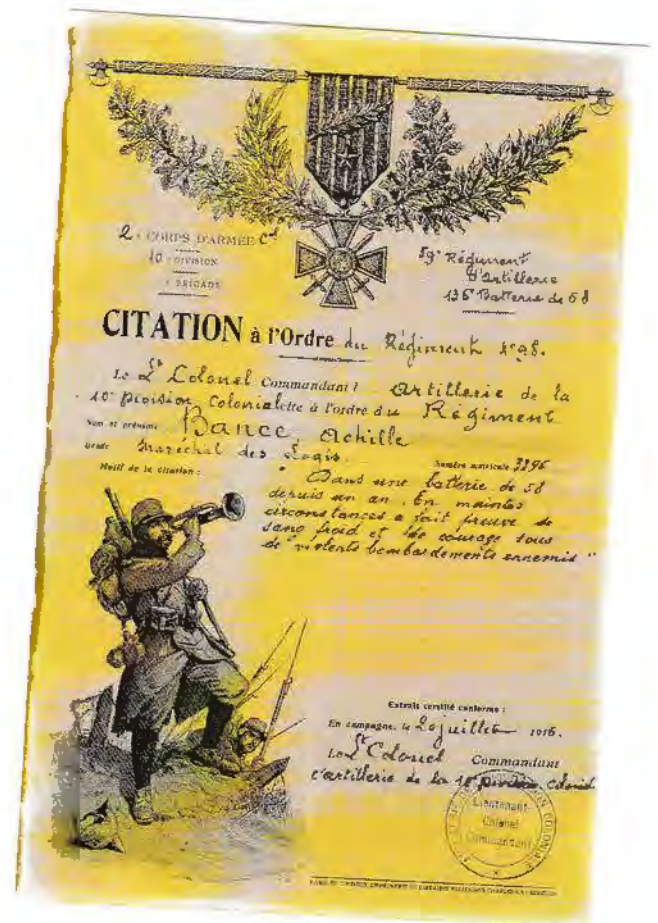 2e CORPS D'ARMÉE Cal
10e DIVISION
BRIGADE
59e Régiment
d'Artillerie
136e Batterie de 58
CITATION à l'Ordre du Régiment N° 98.
Le Lt Colonel Commandant l'Artillerie de la
10e Division Coloniale cite à l'ordre du Régiment
Nom et prénoms Bance Achille
Grade Maréchal des Logis. Numéro matricule 3396
Motif de la citation :
" Dans une batterie de 58
depuis un an. En maintes
circonstances a fait preuve de
sang froid et de courage sous
de violents bombardements ennemis "
Extrait certifié conforme :
En campagne, le 20 juillet 1916.
Le Lt Colonel Commandant
l'artillerie de la 10e Division Colonial
Lieutenant-
Colonel
Commandant
COLONIALE